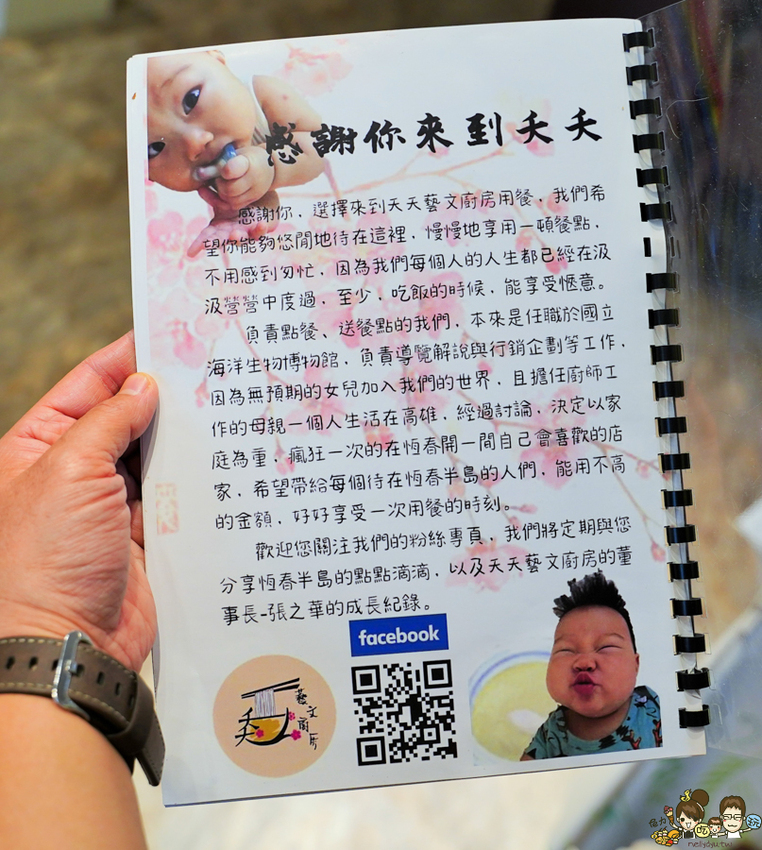 感謝你來到夭夭
感謝你，選擇來到夭夭藝文廚房用餐，我們希
望你能夠悠閒地待在這裡，慢慢地享用一頓餐點，
不用感到匆忙，因為我們每個人的人生都已經在汲
汲營營中度過，至少，吃飯的時候，能享受愜意。
負責點餐、送餐點的我們，本來是任職於國立
海洋生物博物館，負責導覽解說與行銷企劃等工作，
因為無預期的女兒加入我們的世界，且擔任廚師工
作的母親一個人生活在高雄，經過討論，決定以家
庭為重，瘋狂一次的在恆春開一間自己會喜歡的店
家，希望帶給每個待在恆春半島的人們，能用不高
的金額，好好享受一次用餐的時刻。
歡迎您關注我們的粉絲專頁，我們將定期與您
分享恆春半島的點點滴滴，以及夭夭藝文廚房的董
事長-張之華的成長紀錄。
facebook
夭
藝文廚房
nellydyu.tw